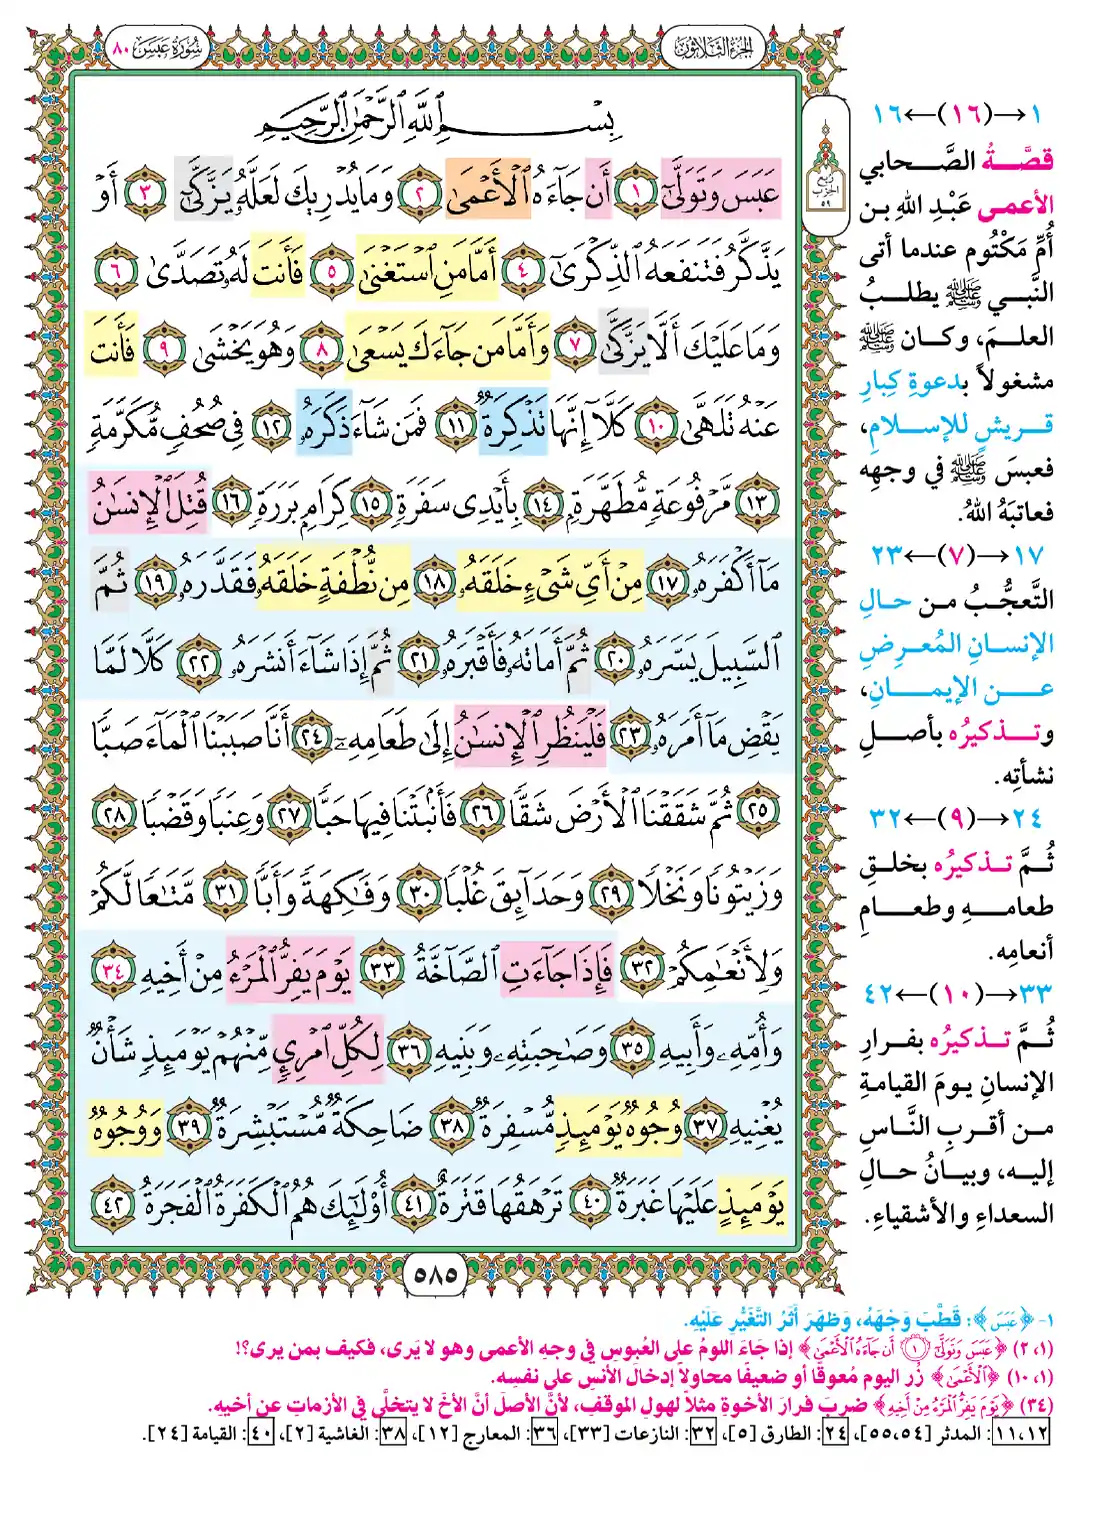 الجزء الثلاثون
سورة عبس ٨٠
بِسْمِ اللَّهِ الرَّحْمَٰنِ الرَّحِيمِ
عَبَسَ وَتَوَلَّىٰٓ ١ أَن جَآءَهُ ٱلْأَعْمَىٰ ٢ وَمَا يُدْرِيكَ لَعَلَّهُۥ يَزَّكَّىٰٓ ٣ أَوْ
يَذَّكَّرُ فَتَنفَعَهُ ٱلذِّكْرَىٰٓ ٤ أَمَّا مَنِ ٱسْتَغْنَىٰ ٥ فَأَنتَ لَهُۥ تَصَدَّىٰ ٦
وَمَا عَلَيْكَ أَلَّا يَزَّكَّىٰ ٧ وَأَمَّا مَن جَآءَكَ يَسْعَىٰ ٨ وَهُوَ يَخْشَىٰ ٩ فَأَنتَ
عَنْهُ تَلَهَّىٰ ١٠ كَلَّآ إِنَّهَا تَذْكِرَةٌ ١١ فَمَن شَآءَ ذَكَرَهُۥ ١٢ فِى صُحُفٍ مُّكَرَّمَةٍ
١٣ مَّرْفُوعَةٍ مُّطَهَّرَةٍۭ ١٤ بِأَيْدِى سَفَرَةٍ ١٥ كِرَامٍۭ بَرَرَةٍ ١٦ قُتِلَ ٱلْإِنسَٰنُ
مَآ أَكْفَرَهُۥ ١٧ مِنْ أَىِّ شَىْءٍ خَلَقَهُۥ ١٨ مِن نُّطْفَةٍ خَلَقَهُۥ فَقَدَّرَهُۥ ١٩ ثُمَّ
ٱلسَّبِيلَ يَسَّرَهُۥ ٢٠ ثُمَّ أَمَاتَهُۥ فَأَقْبَرَهُۥ ٢١ ثُمَّ إِذَا شَآءَ أَنشَرَهُۥ ٢٢ كَلَّا لَمَّا
يَقْضِ مَآ أَمَرَهُۥ ٢٣ فَلْيَنظُرِ ٱلْإِنسَٰنُ إِلَىٰ طَعَامِهِۦٓ ٢٤ أَنَّا صَبَبْنَا ٱلْمَآءَ صَبًّا
٢٥ ثُمَّ شَقَقْنَا ٱلْأَرْضَ شَقًّا ٢٦ فَأَنۢبَتْنَا فِيهَا حَبًّا ٢٧ وَعِنَبًا وَقَضْبًا ٢٨
وَزَيْتُونًا وَنَخْلًا ٢٩ وَحَدَآئِقَ غُلْبًا ٣٠ وَفَٰكِهَةً وَأَبًّا ٣١ مَّتَٰعًا لَّكُمْ
وَلِأَنْعَٰمِكُمْ ٣٢ فَإِذَا جَآءَتِ ٱلصَّآخَّةُ ٣٣ يَوْمَ يَفِرُّ ٱلْمَرْءُ مِنْ أَخِيهِ ٣٤
وَأُمِّهِۦ وَأَبِيهِ ٣٥ وَصَٰحِبَتِهِۦ وَبَنِيهِ ٣٦ لِكُلِّ ٱمْرِئٍ مِّنْهُمْ يَوْمَئِذٍ شَأْنٌ
يُغْنِيهِ ٣٧ وُجُوهٌ يَوْمَئِذٍ مُّسْفِرَةٌ ٣٨ ضَاحِكَةٌ مُّسْتَبْشِرَةٌ ٣٩ وَوُجُوهٌ
يَوْمَئِذٍ عَلَيْهَا غَبَرَةٌ ٤٠ تَرْهَقُهَا قَتَرَةٌ ٤١ أُو۟لَٰٓئِكَ هُمُ ٱلْكَفَرَةُ ٱلْفَجَرَةُ ٤٢
٥٨٥
ربع
الحزب
٥٩
١→(١٦)←١٦
قصَّةُ الصَّحابي
الأعمى عَبْدِ اللهِ بن
أُمِّ مَكْتُوم عندما أتى
النَّبي ﷺ يطلبُ
العلمَ، وكان ﷺ
مشغولاً بدعوةِ كِبارِ
قريشٍ للإسلامِ،
فعبسَ ﷺ في وجهِه
فعاتبَهُ اللهُ.
١٧→(٧)←٢٣
التَّعجُّبُ من حالِ
الإنسانِ المُعرِضِ
عن الإيمانِ،
وتذكيرُه بأصلِ
نشأتِه.
٢٤→(٩)←٣٢
ثُمَّ تذكيرُه بخلقِ
طعامِه وطعامِ
أنعامِه.
٣٣→(١٠)←٤٢
ثُمَّ تذكيرُه بفرارِ
الإنسانِ يومَ القيامةِ
من أقربِ النَّاسِ
إليه، وبيانُ حالِ
السعداءِ والأشقياءِ.
١- ﴿عَبَسَ﴾: قَطَّبَ وَجْهَهُ، وَظَهَرَ أَثَرُ التَّغَيُّرِ عَلَيْهِ.
(١، ٢) ﴿عَبَسَ وَتَوَلَّىٰٓ ١ أَن جَآءَهُ ٱلْأَعْمَىٰ﴾ إذا جَاءَ اللومُ على العُبوسِ في وجهِ الأعمى وهو لا يَرى، فكيف بمن يرى؟!
(١، ١٠) ﴿ٱلْأَعْمَىٰ﴾ زُر اليوم مُعوقًا أو ضعيفًا محاولًا إدخالَ الأنسِ على نفسِه.
(٣٤) ﴿يَوْمَ يَفِرُّ ٱلْمَرْءُ مِنْ أَخِيهِ﴾ ضربَ فرارَ الأخوةِ مثلًا لهولِ الموقفِ، لأنَّ الأصلَ أنَّ الأخَ لا يتخلَّى في الأزماتِ عن أخيهِ.
١١،١٢: المدثر [٥٥،٥٤]، ٢٤: الطارق [٥]، ٣٢: النازعات [٣٣]، ٣٦: المعارج [١٢]، ٣٨: الغاشية [٢]، ٤٠: القيامة [٢٤].